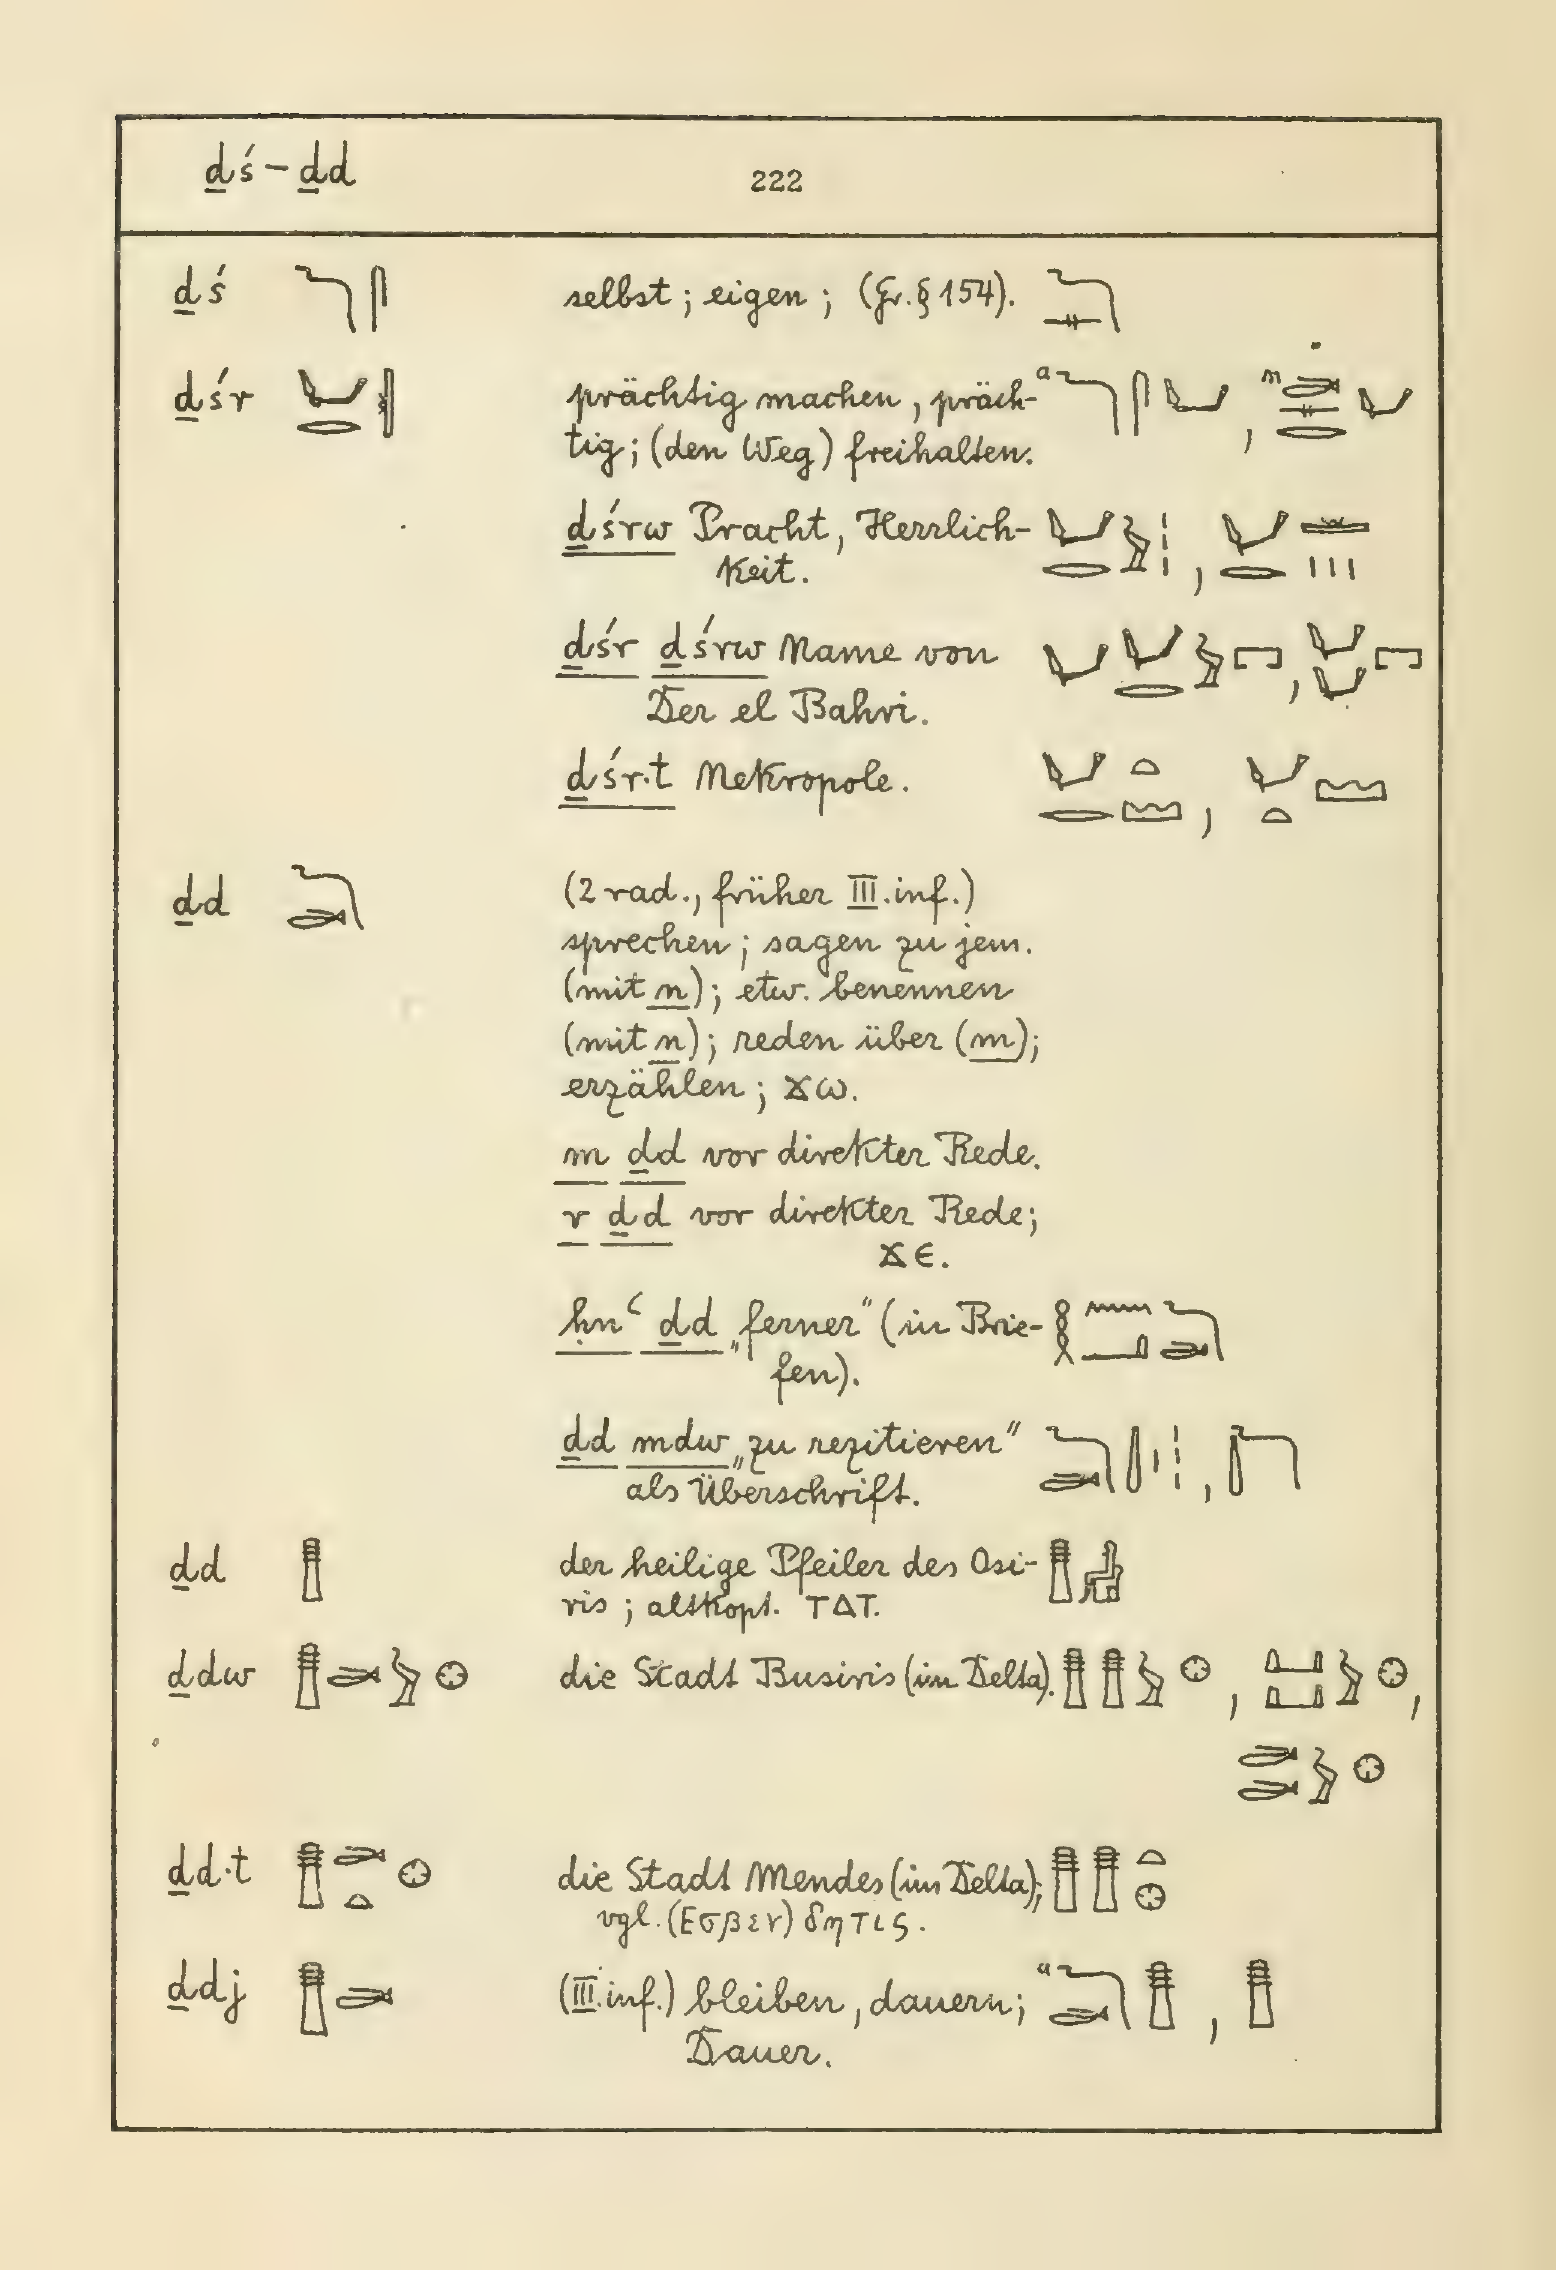 ḏś – ḏd
222
ḏś 𓆓𓋴 selbst; eigen; (Gr. § 154). 𓆓𓊃
ḏśr 𓂦𓂋 prächtig machen, präch-
tig; (den Weg) freihalten.
ḏśrw Pracht, Herrlich-
keit.
ḏśr ḏśrw Name von
Der el Bahri.
ḏśr·t Nekropole.
ḏd 𓆓𓂧 (2 rad., früher III. inf.)
sprechen; sagen zu jem.
(mit n); etw. benennen
(mit n); reden über (m);
erzählen; ϫⲱ.
m ḏd vor direkter Rede.
r ḏd vor direkter Rede;
ϫⲉ.
ḥnʿ ḏd „ferner“ (in Brie-
fen).
ḏd mdw „zu rezitieren“
als Überschrift.
ḏd 𓊽 der heilige Pfeiler des Osi-
ris; altkopt. ⲧⲁⲧ.
ḏdw 𓊽 𓅱𓊖 die Stadt Busiris (im Delta). 𓊽𓊽𓅱𓊖,
ḏd·t 𓊽 𓏏𓊖 die Stadt Mendes (im Delta); 𓊽𓊽𓏏𓊖
vgl. (Εσβεν) δητις.
ḏdj 𓊽 (III. inf.) bleiben, dauern; a , 𓊽
Dauer.